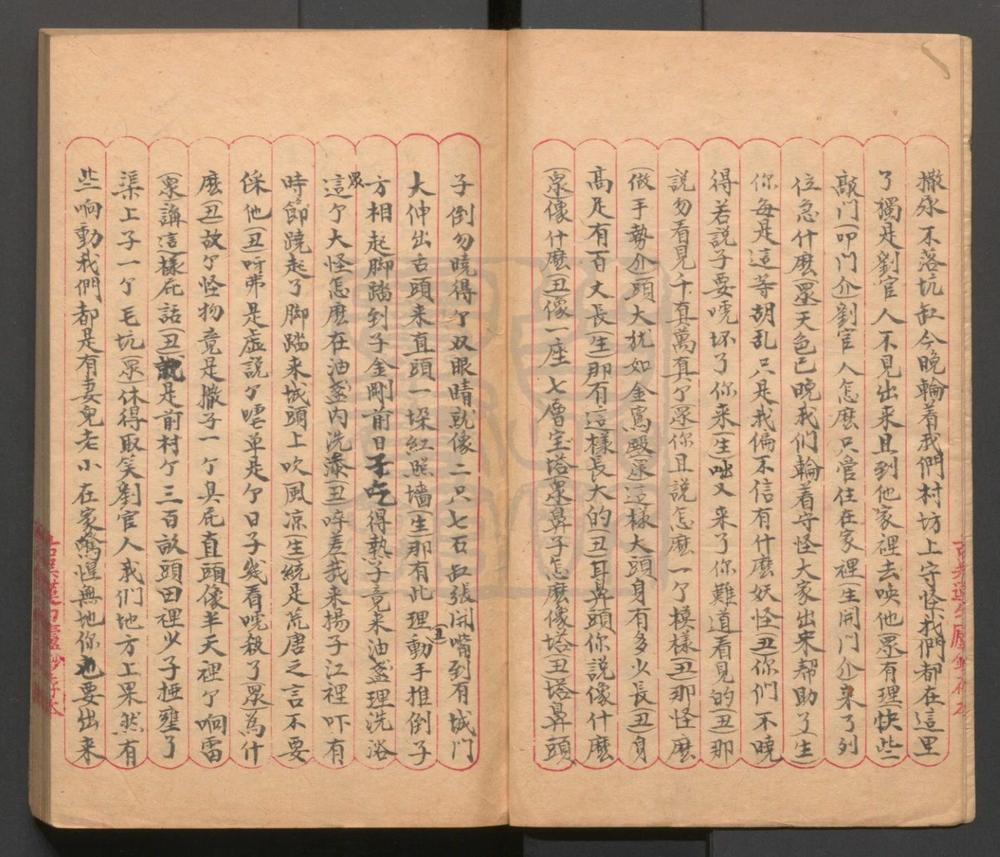 撒尿不落坑缸今晚輪着我們村坊上守怪我們都在這里
了獨是劉官人不見出來且到他家裡去喚他(眾)有理快些
敲門(叩門介)劉官人怎麽只管住在家裡(生開門介)來了列
位急什麽(眾)天色已晚我们輪着守怪大家出來帮助了(生)
你每是這等胡乱只是我偏不信有什麽妖怪(丑)你們不曉
得若説子要唬坏了你来(生)咄又来了你難道看見的(丑)那
説勿看見十真萬真个(眾)你且説怎麽一个模樣(丑)那怪麽
(做手勢介)頭大犹如金寫殿(眾)這樣大頭身有多少長(丑)身
高足有百丈長(生)那有這樣長大的(丑)耳鼻頭你説像什麽
(眾)像什麽(丑)像一座七層宝塔(眾)鼻子怎麽像塔(丑)塔鼻頭
子倒勿曉得个双眼睛就像二只七石缸張開嘴到有城門
大伸出舌頭来直頭一垜紅照墻(生)那有此理(丑)動手推倒子
方相起脚踏到子金剛前日子吃得熱子竟来油盞理洗浴
(眾)這个大怪怎麽在油盞内洗澡(丑)啐差哉来揚子江裡吓有
時節蹺起了脚踏来城頭上吹風凉(生)統是荒唐之言不要
倸他(丑)吓弗是虚説个嘘单是个日子幾看唬殺了(眾)為什
麽(丑)故个怪物竟是撒子一个具屁直頭像半天裡个响雷
(眾)講這樣屁話(丑)就是前村个三百畝頭田裡少子揷壅了
渠上子一个毛坑(眾)休得取笑劉官人我们地方上果然有
些响動我們都是有妻兒老小在家驚惺無地你也要出來